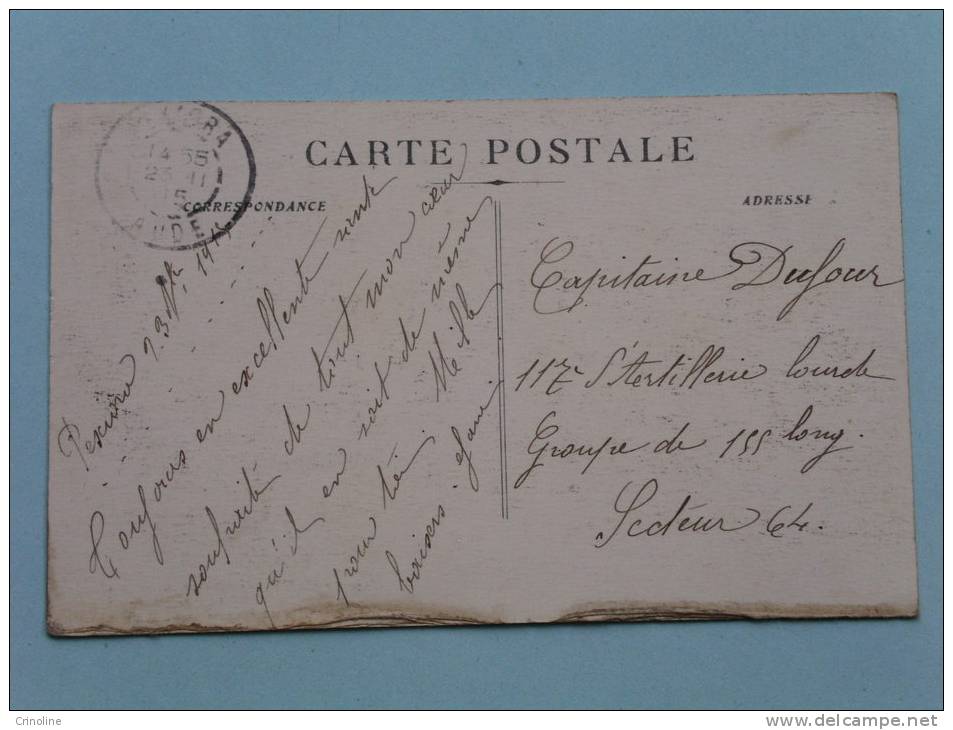 CARTE POSTALE
CORRESPONDANCE
ADRESSE
14 55
23 11
15
AUDE
23 1915
Toujours en excellente santé
souhaite de tout mon cœur
qu'il en soit de même
pour toi. Mille
baisers
Capitaine Dufour
117e d'Artillerie lourde
Groupe de 155 long.
Secteur 64.
Crinoline
www.delcampe.net